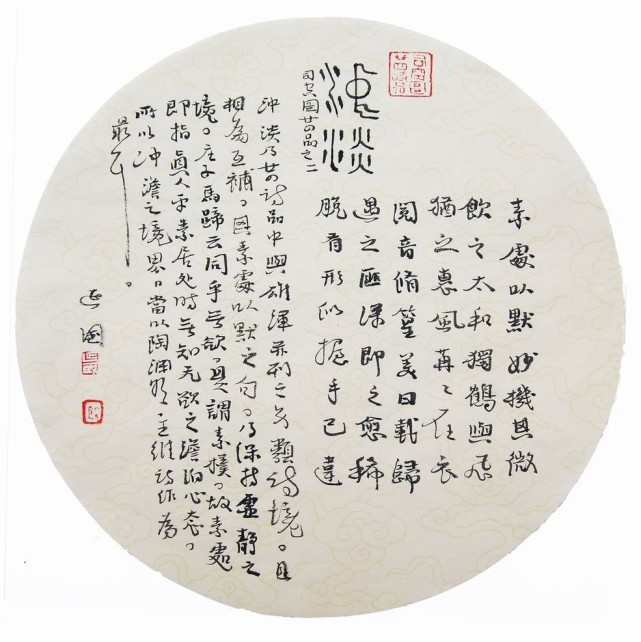 素處以默妙機其微
飲之太和獨鶴與飛
猶之惠風苒〻在衣
閱音脩篁美曰載歸
遇之匪深即之愈稀
脫有形似握手已違
沖淡
司空圖廿四品之二
沖淡乃廿四詩品中與雄渾並列之另類詩境。且
相為互補。圖素處以默之句。乃保持虛靜之
境。莊子馬蹄云同乎無欲。是謂素樸。故素處
即指真人平素居處時無知无欲之澹泊心态。
所以沖澹之境界。當以陶淵明王維詩作為
最